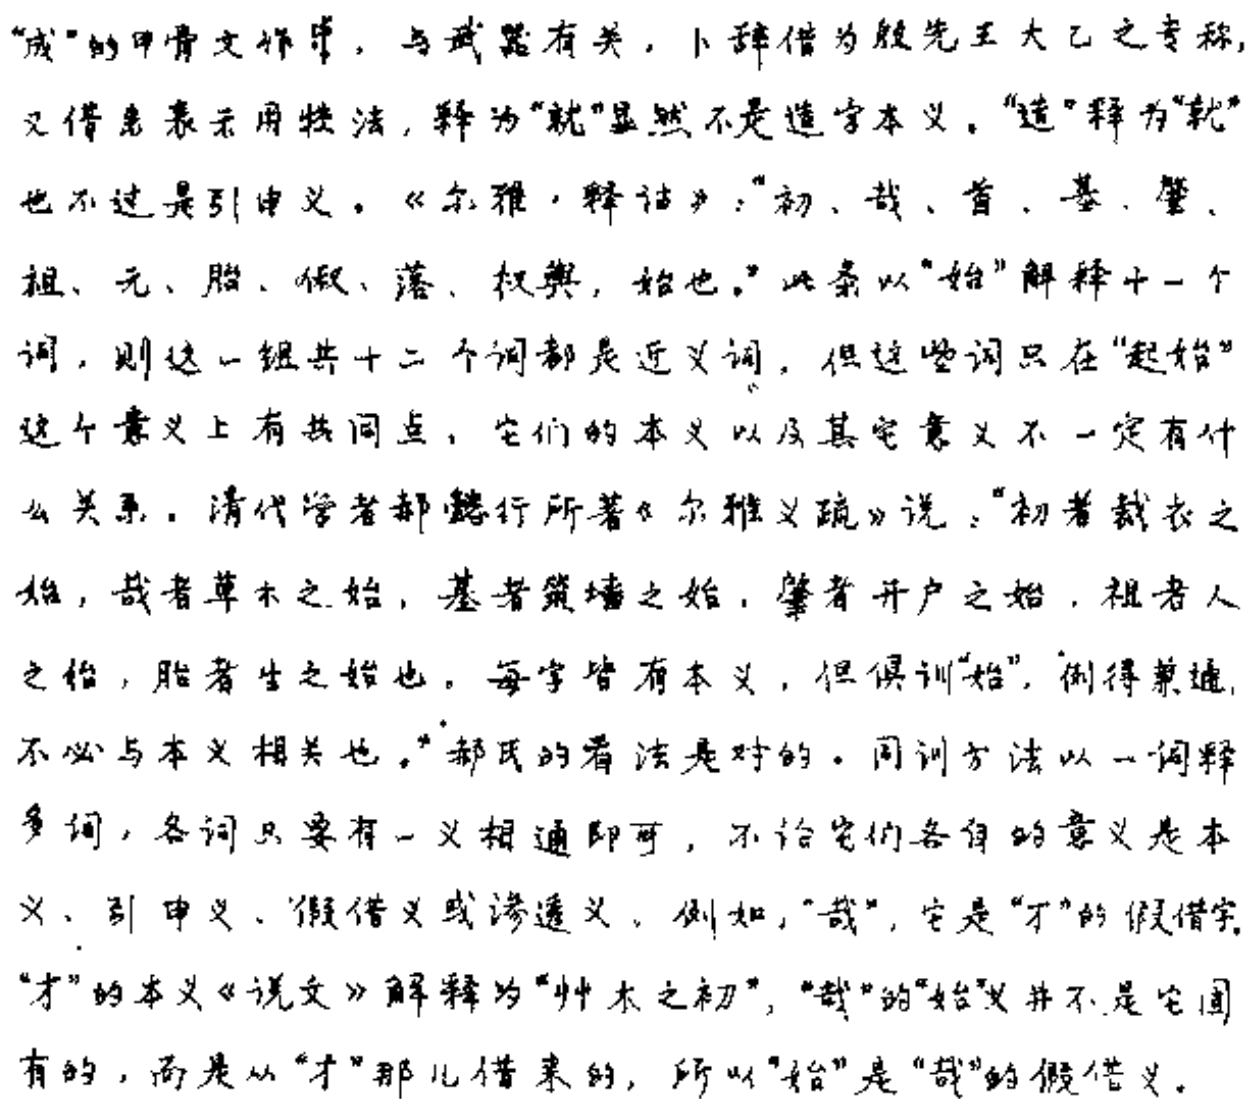 “成”的甲骨文作，与武器有关，卜辞借为殷先王大乙之专称，
又借来表示用牲法，释为“就”显然不是造字本义。“造”释为“就”
也不过是引申义。《尔雅·释诂》：“初、哉、首、基、肇、
祖、元、胎、俶、落、权舆，始也。”此条以“始”解释十一个
词，则这一组共十二个词都是近义词，但这些词只在“起始”
这个意义上有共同点，它们的本义以及其它意义不一定有什
么关系。清代学者郝懿行所著《尔雅义疏》说：“初者裁衣之
始，哉者草木之始，基者筑墙之始，肇者开户之始，祖者人
之始，胎者生之始也。每字皆有本义，但俱训“始”，例得兼通，
不必与本义相关也。”郝氏的看法是对的。同训方法以一词释
多词，各词只要有一义相通即可，不论它们各自的意义是本
义、引申义、假借义或渗透义。例如，“哉”，它是“才”的假借字。
“才”的本义《说文》解释为“艸木之初”，“哉”的“始”义并不是它固
有的，而是从“才”那儿借来的，所以“始”是“哉”的假借义。